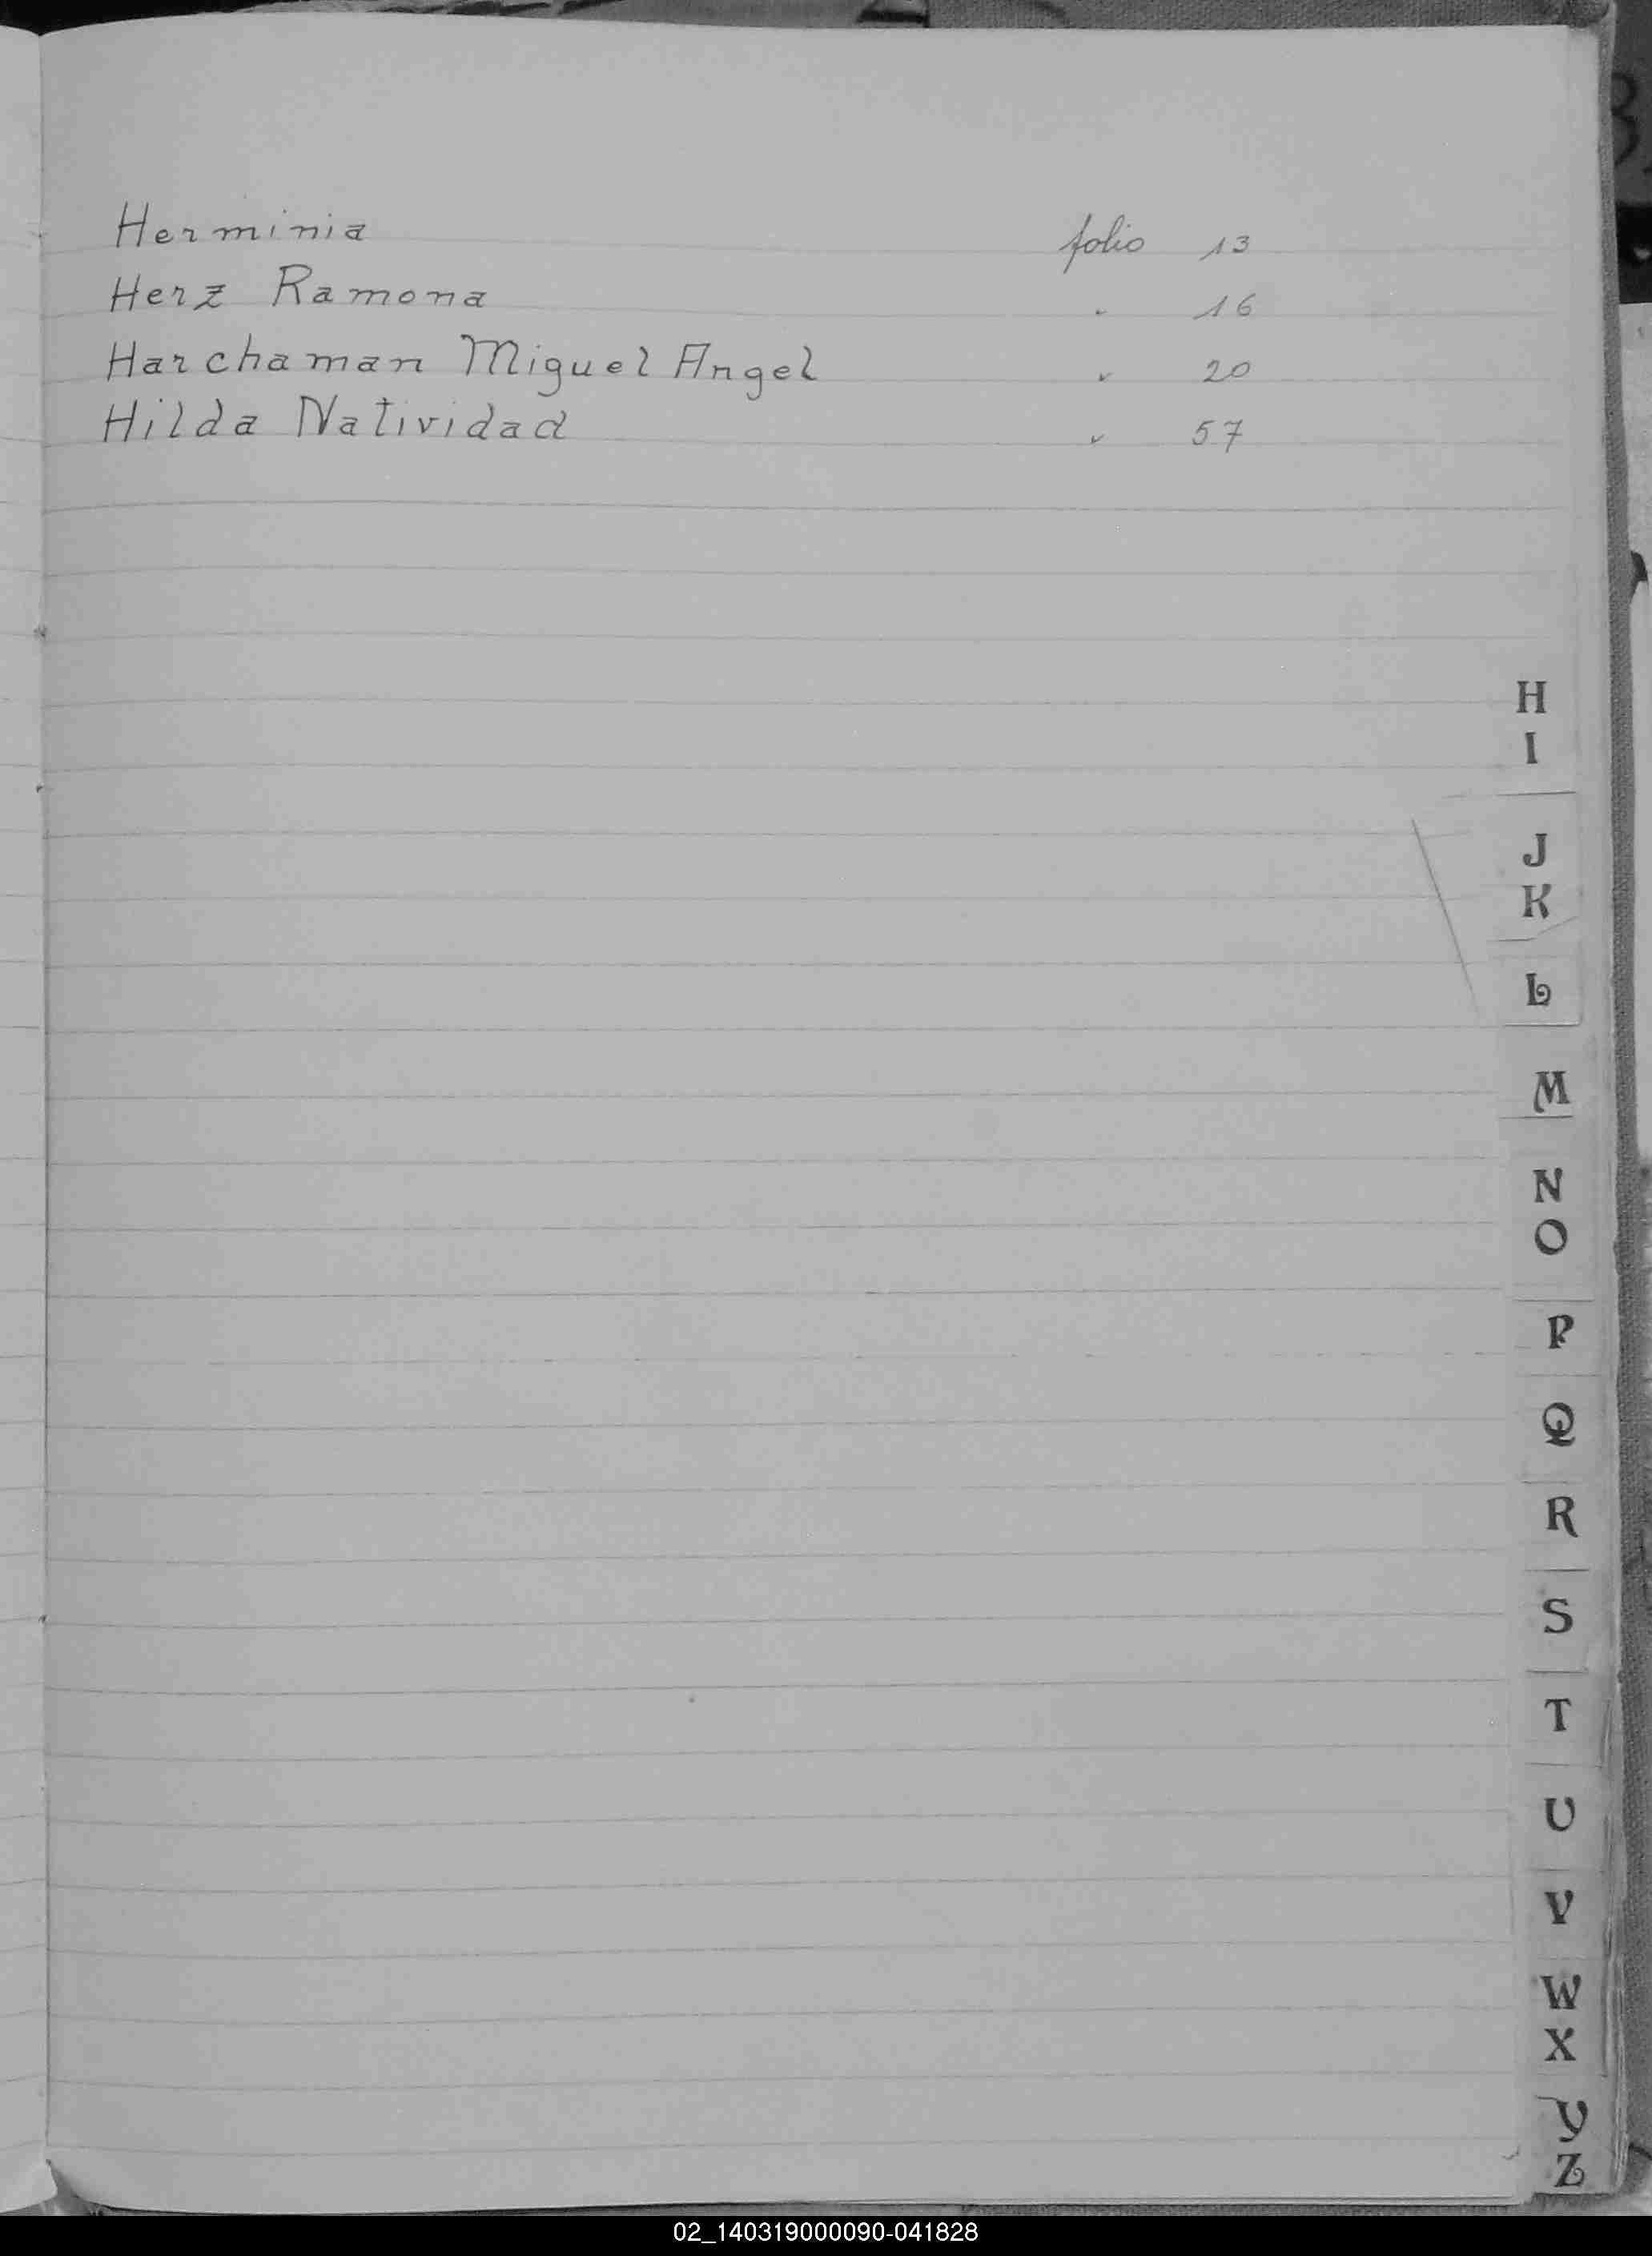 Herminia folio 13
Herz Ramona " 16
Harchaman Miguel Angel " 20
Hilda Natividad " 57
H
I
J
K
L
M
N
O
P
Q
R
S
T
U
V
W
X
Y
Z
02_140319000090-041828